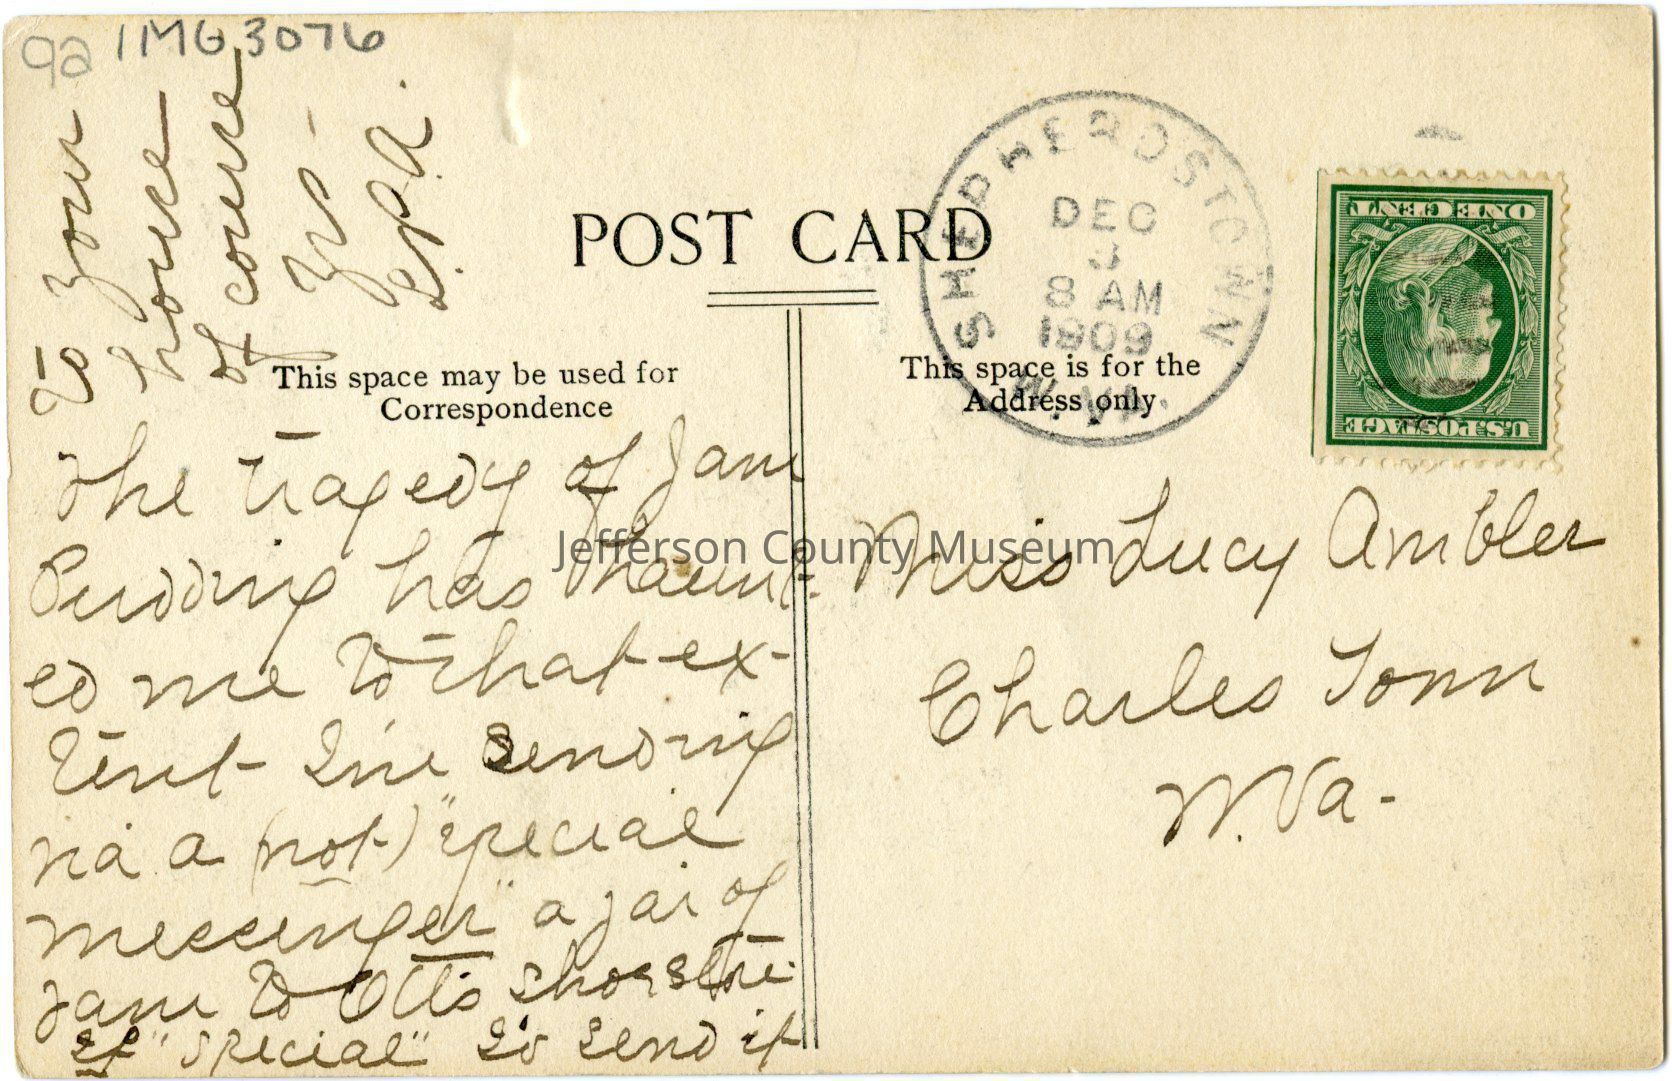 92 IMG 3076
POST CARD
SHEPHERDSTOWN
DEC
3
8 AM
1909
W. VA.
ONE CENT
U.S. POSTAGE
This space may be used for
Correspondence
This space is for the
Address only
The tragedy of Jam
Pudding has haunt-
ed me to that ex-
tent I'm sending
via a (not) "special
messenger" a jar of
jam to Otto shoe store
If "special" I'd send it
to your
house
of course
Ys -
L.P.A.
Miss Lucy Ambler
Charles Town
W. Va-
Jefferson County Museum